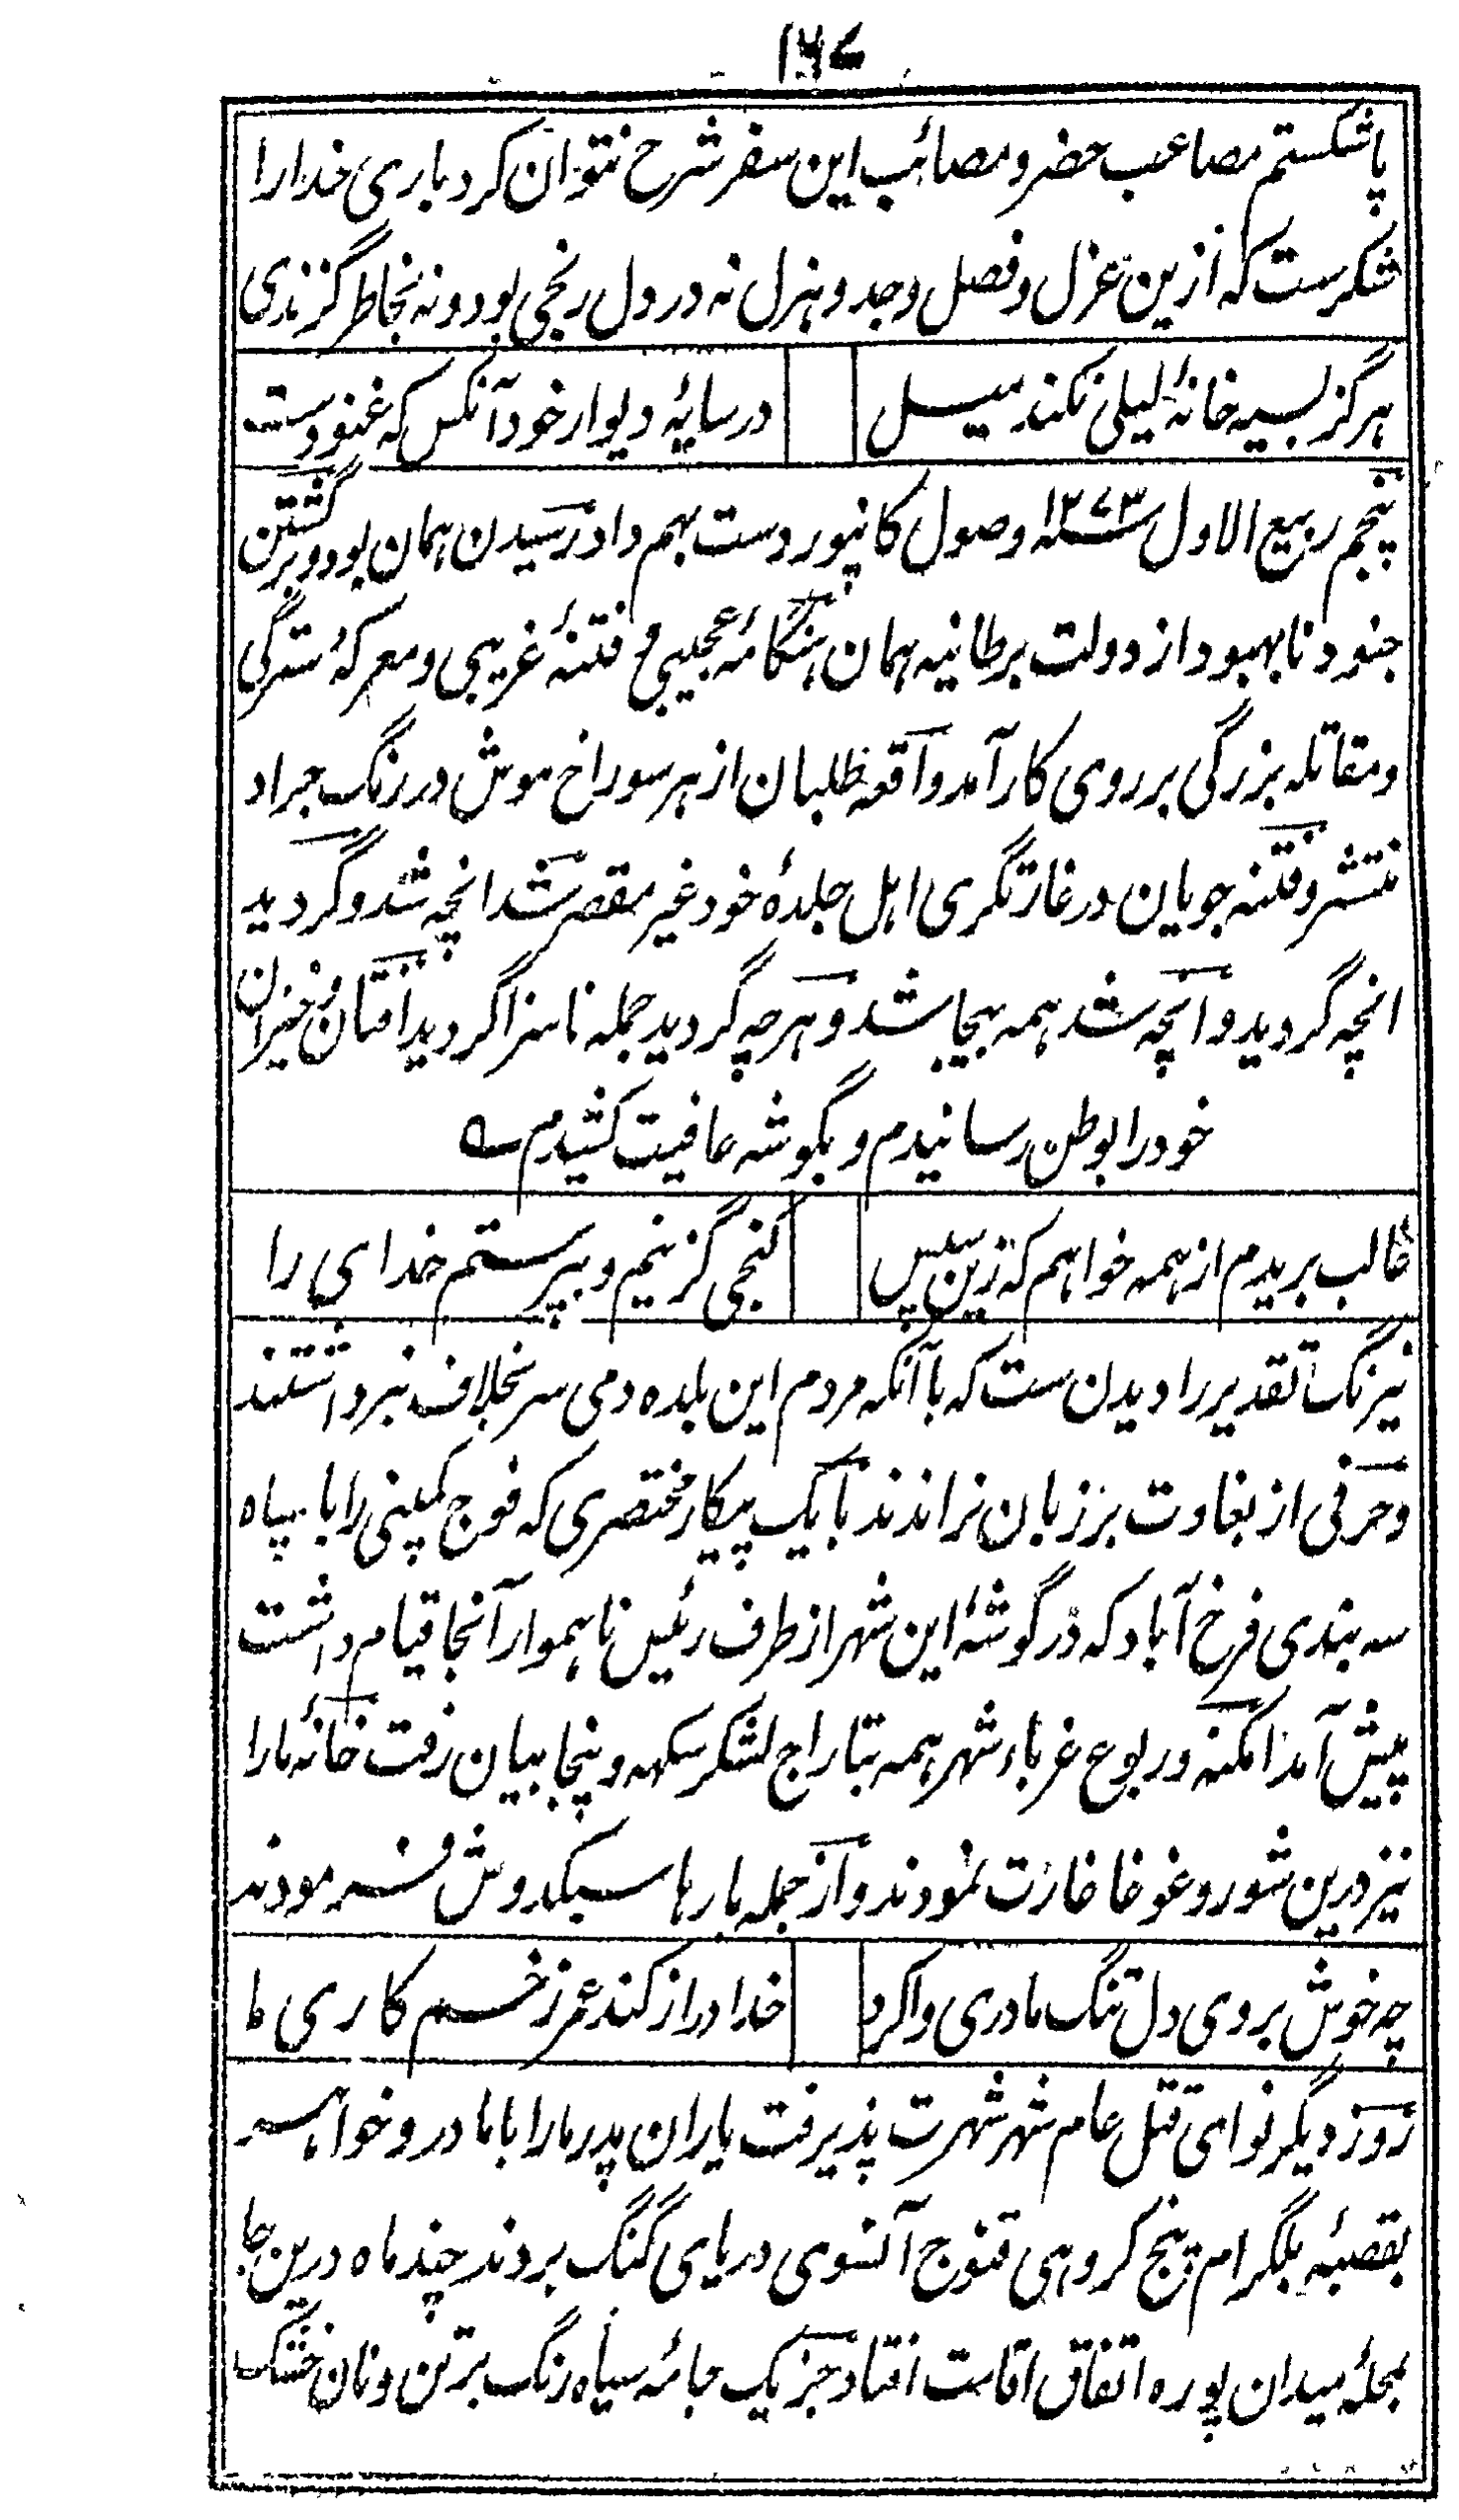 ۱۶۷
پا شکستم مصاعب حضر و مصائب این سفر شرح نتوان کرد باری خدارا
شکرست که ازین عزل و فصل و جد و هزل نه در دل رنجی بود و نه بخاطر گزندی
هرگز بسیه خانهٔ لیلی نکند میل
در سایهٔ دیوار خود آنکس که غنودست
پنجم ربیع الاول ۱۲۷۳ وصول کانپور دست بهم داد رسیدن همان بود و برگشتن
جنود نابهبود از دولت برطانیه همان هنگامهٔ عجیبی و فتنهٔ غریبی و معرکهٔ سترگی
و مقاتلهٔ بزرگی بر روی کار آمد واقعه طلبان از هر سوراخ موش در رنگ جراد
منتشر و فتنه جویان در غارتگری اهل جلدهٔ خود غیر مقصر شد انچه شد و گردید
انچه گردید و آنچه شد همه بیجا شد و هرچه گردید جمله ناسزا گردید افتان و خیزان
خود را بوطن رسانیدم و بگوشه عافیت کشیدم ے
غالب بریدم از همه خواهم که زین سپس
کنجی گزینم و بپرستم خدای را
نیرنگ تقدیر را دیدن ست که با آنکه مردم این بلده دمی سر بخلاف نبرداشتند
و حرفی از بغاوت بر زبان نراندند با یک پیکار مختصری که فوج کمپنی را با سپاه
سه بندی فرخ آباد که در گوشهٔ این شهر از طرف رئیس ناهموار آنجا قیام داشت
پیش آمد امکنه و ربوع غرباء شهر همه بتاراج لشکر سکهه و پنجابیان رفت خانهٔ مارا
نیز درین شور و غوغا غارت نمودند و از جمله بارها سبکدوش فرمودند
چه خوش بروی دل تنگ ما دری وا کرد
خدا دراز کند عمر زخم کاری ما
روز دیگر نواهی قتل عام شهر شهرت پذیرفت یاران پدر مارا با مادر و خواهر
بقصبهٔ بلگرام پنج کروهی قنوج آنسوی دریای گنگ بردند چند ماه درین جا
بمحلهٔ میدان پوره اتفاق اقامت افتاد جز یک جامهٔ سیاه رنگ بر تن و نان خشک